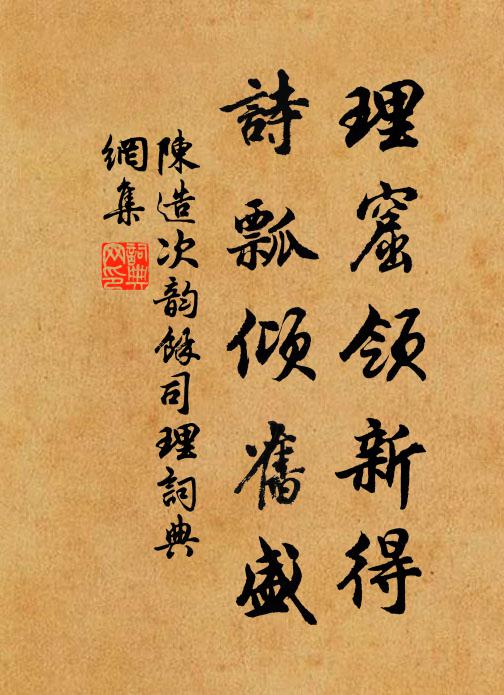 理窟領新得
詩瓢傾舊盛
陳造次韵餘司理詞典
網集
詞典網印